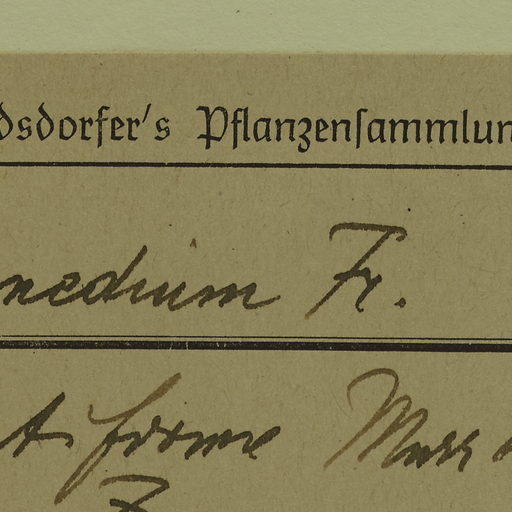 dsdorfer's Pflanzensammlun
nedium Fr.
t. forme Murr